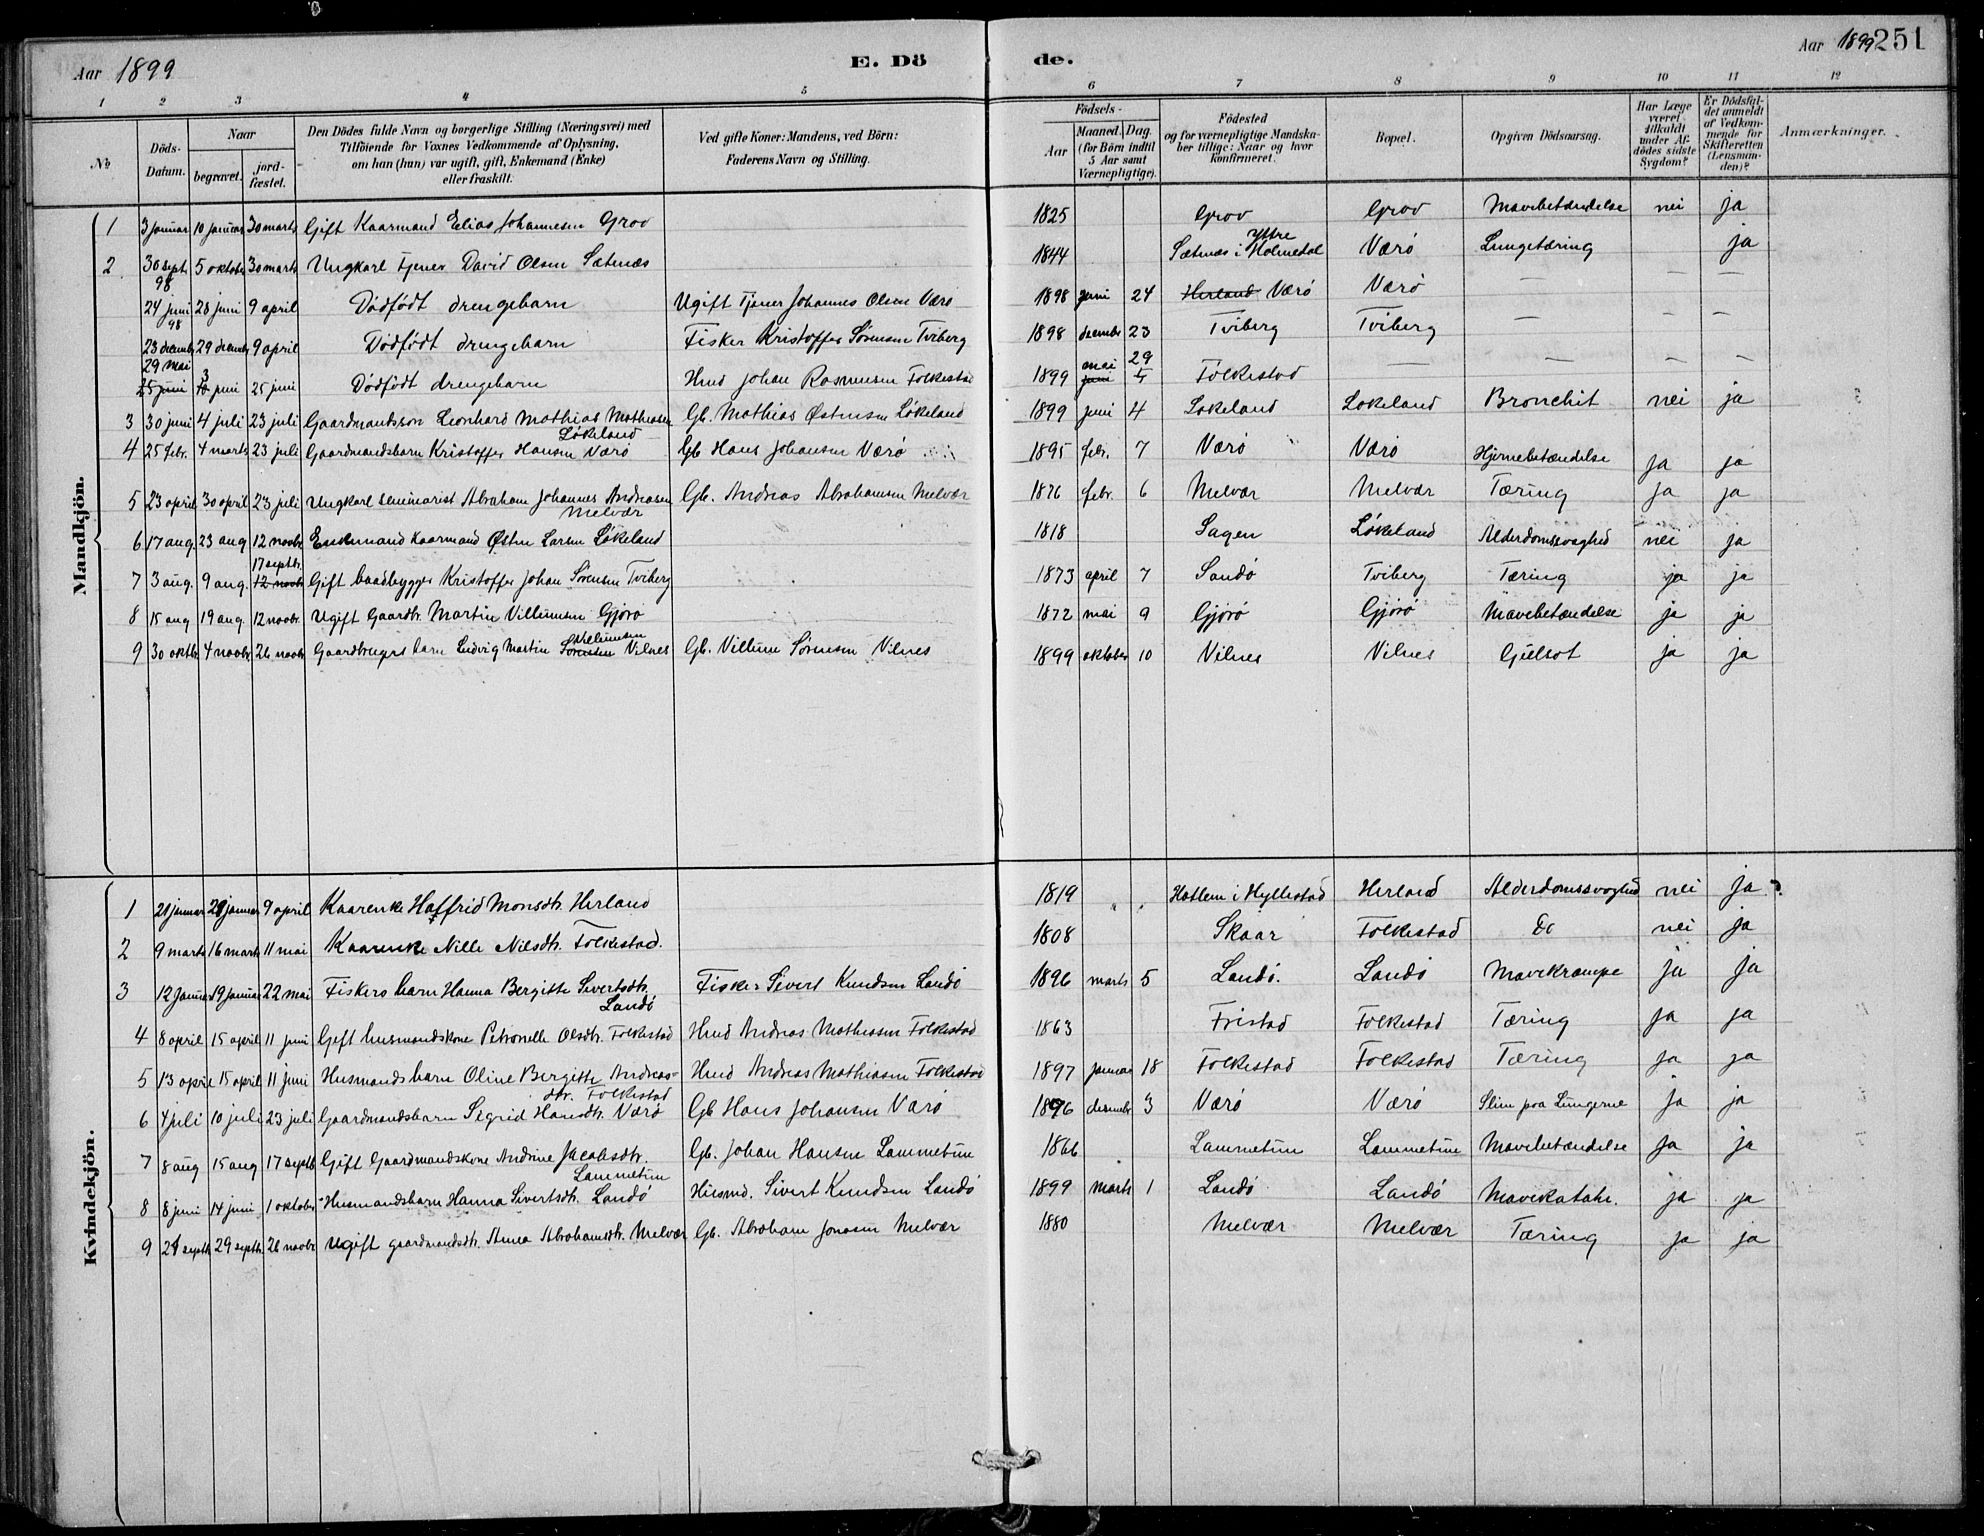 Aar 1899
E. Dö
de.
Aar 1899 251
1 2 3 4 5 6 7 8 9 10 11 12
No
Döds-Datum.
Naar
begravet.
jord-fæstet.
Den Dödes fulde Navn og borgerlige Stilling (Næringsvei) med
Tilföiende for Voxnes Vedkommende af Oplysning,
om han (hun) var ugift, gift, Enkemand (Enke)
eller fraskilt.
Ved gifte Koner: Mandens, ved Börn:
Faderens Navn og Stilling.
Födsels-
Aar
Maaned. Dag.
(for Börn indtil
5 Aar samt
Værnepligtige).
Födested
og for værnepligtige Mandska-
ber tillige: Naar og hvor
Konfirmeret.
Bopæl.
Opgiven Dödsaarsag.
Har Læge
været
tilkaldt
under Af-
dödes sidste
Sygdom?
Er Dödsfal-
det anmeldt
af Vedkom-
mende for
Skifteretten
(Lensman-
den)?
Anmærkninger.
Mandkjön.
1 3 januar 10 januar 30 marts Gift Kaarmand Elias Johannesen Grov 1825 Grov Grov Mavebetændelse nei ja
2 30 sept 98 5 oktober 30 marts Ungkarl Tjener David Olsen Sætnæs 1844 Sætnæs i Yttre Holmedal Værö Lungetæring ja
24 juni 98 28 juni 9 april Dödfödt drengebarn Ugift Tjener Johannes Olsen Værö 1898 juni 24 Herland Værö Værö — — —
23 decembr 29 decembr 9 april Dödfödt drengebarn Fisker Kristoffer Sörensen Tviberg 1898 decembr 23 Tviberg Tviberg — — —
29 mai 25 juni 3 10 juni 25 juni Dödfödt drengebarn Hmd Johan Rasmussen Folkestad 1899 mai juni 29 4 Folkestad — — — —
3 30 juni 4 juli 23 juli Gaardmandssön Leonhard Mathias Mathiesen Lökeland Gb. Mathias Östensen Lökeland 1899 juni 4 Lökeland Lökeland Bronchit nei ja
4 25 febr. 4 marts 23 juli Gaardmandsbarn Kristoffer Hansen Værö Gb Hans Johansen Værö 1895 febr. 7 Værö Værö Hjernebetændelse ja ja
5 23 april 30 april 23 juli Ungkarl seminarist Abraham Johannes Andreasen Melvær Gb. Andreas Abrahamsen Melvær 1876 febr. 6 Melvær Melvær Tæring ja ja
6 17 aug. 23 aug 12 novbr Enkemand Kaarmand Östen Larsen Lökeland 1818 Sagen Lökeland Alderdomssvaghed nei ja
7 3 aug. 9 aug. 17 septbr. 12 novbr Gift baadbygger Kristoffer Johan Sörensen Tviberg 1873 april 7 Sandö Tviberg Tæring ja ja
8 15 aug 19 aug. 12 novbr. Ugift Gaardbr. Martin Villumsen Gjörö 1872 mai 9 Gjörö Gjörö Mavebetændelse ja ja
9 30 oktbr. 4 novbr 26 novbr Gaardbrugers barn Ludvig Martin Sörensen Villumsen Vilnes Gb. Villum Sörensen Vilnes 1899 oktober 10 Vilnes Vilnes Gulsot ja ja
Kvindekjön.
1 21 januar 28 januar 9 april Kaarenke Haffrid Monsdtr. Herland 1819 Hatlem i Hyllestad Herland Alderdomssvaghed nei ja
2 9 marts 16 marts 11 mai Kaarenke Nille Nilsdtr. Folkestad. 1808 Skaar Folkestad Do nei ja
3 12 januar 19 januar 22 mai Fiskers barn Hanna Bergitte Sivertsdtr. Landö Fisker Sivert Knudsen Landö 1896 marts 5 Landö. Landö Mavekrampe ja ja
4 8 april 15 april 11 juni Gift husmandskone Petronelle Olsdtr. Folkestad Hmd Andreas Mathiesen Folkestad 1863 Fristad Folkestad Tæring ja ja
5 13 april 15 april 11 juni Husmandsbarn Oline Bergitte Andreas-dtr. Folkestad Hmd Andreas Mathiasen Folkestad 1897 januar 18 Folkestad Folkestad Tæring ja ja
6 4 juli 10 juli 23 juli Gaardmandsbarn Sigrid Hansdtr. Værö Gb Hans Johansen Værö 1896 desembr 3 Værö Værö Slim paa Lungerne ja ja
7 8 aug 15 aug 17 septb Gift Gaardmandskone Andrine Jacobsdtr. Lammetun Gb. Johan Hansen Lammetun 1866 Lammetun Lammetun Mavebetændelse ja ja
8 8 juni 14 juni 1 oktober Husmandsbarn Hanna Sivertsdtr. Landö Husmd. Sivert Knudsen Landö 1899 marts 1 Landö Landö Mavekatahr. ja ja
9 21 septb 29 septb 26 novbr Ugift gaardmandsdtr. Anna Abrahamsdtr. Melvær Gb. Abraham Jonasen Melvær 1880 Melvær Melvær Tæring ja ja